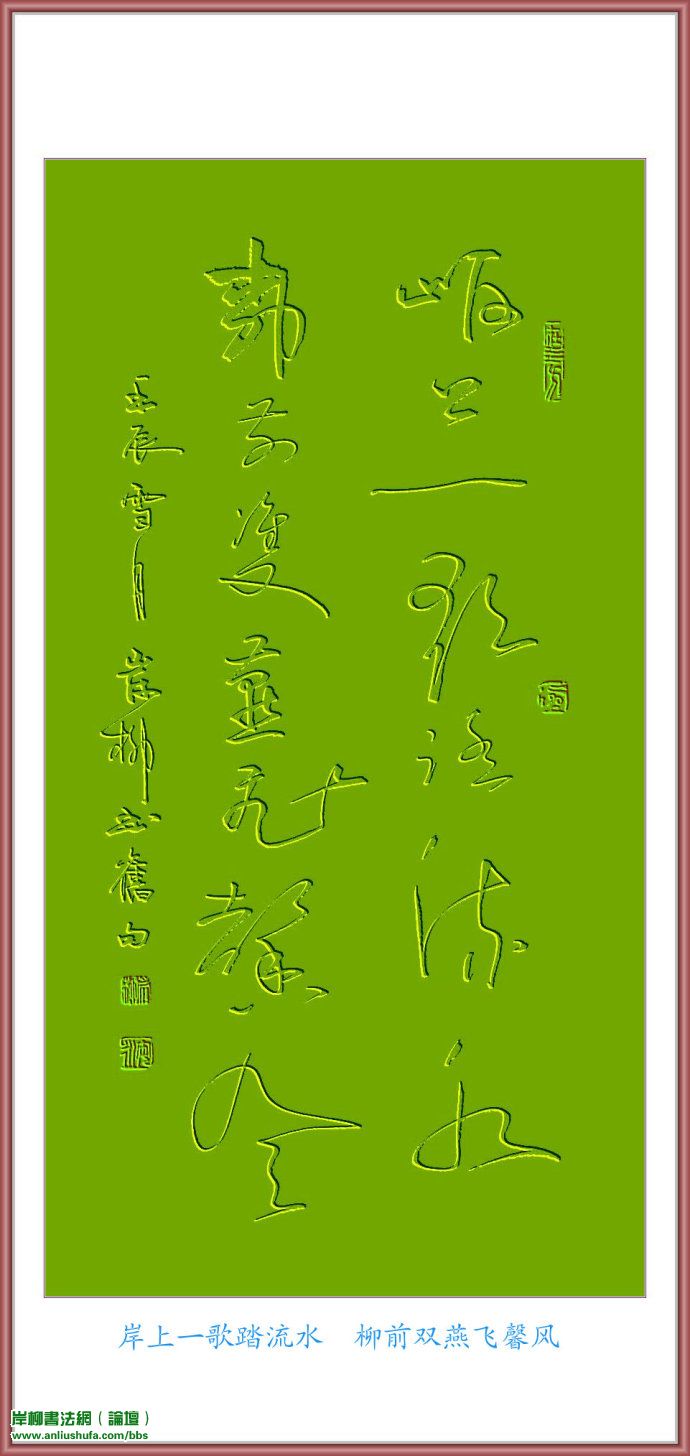 岸上一歌踏流水
柳前雙燕飛馨風
壬辰雪月岸柳書舊句
岸上一歌踏流水 柳前双燕飞馨风
岸柳書法網（論壇）
www.anliushufa.com/bbs